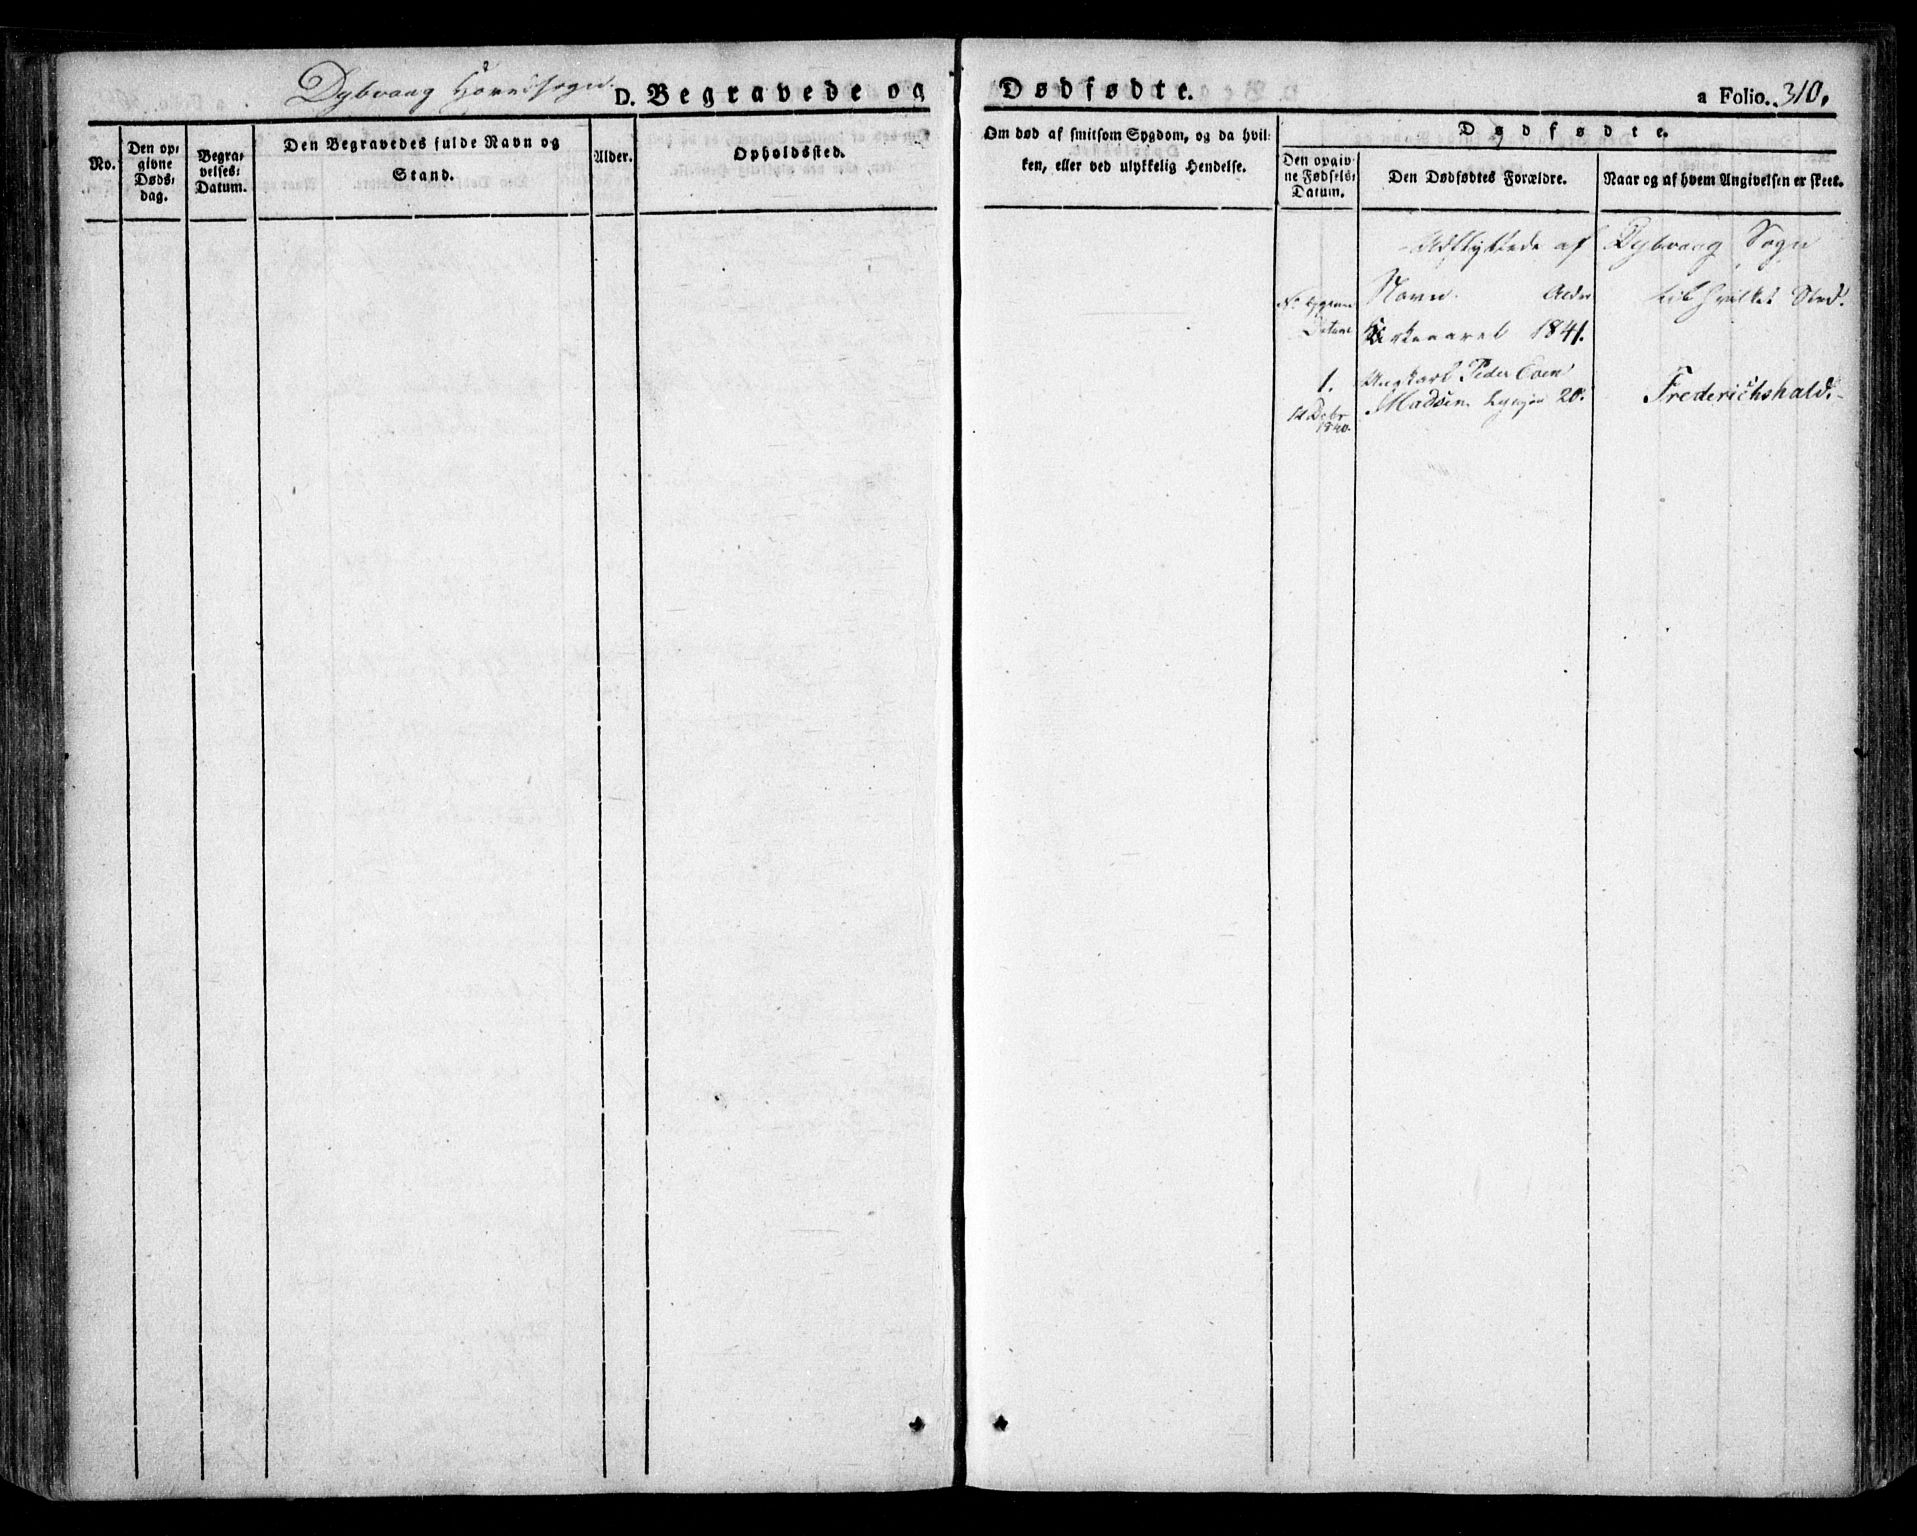 Dybvaag Hovedsogn.
D. Begravede og Dødfødte.
a Folio. 310.
No.
Den op-
givne
Døds-
dag.
Begra-
velses-
Datum.
Den Begravedes fulde Navn og
Stand.
Alder.
Opholdssted.
Om død af smitsom Sygdom, og da hvil-
ken, eller ved ulykkelig Hendelse.
Dødfødte.
Den opgiv-
ne Fødsels-
Datum.
Den Dødfødtes Forældre.
Naar og af hvem Angivelsen er skeet.
Udflyttede af Dybvaag Sogn
Navn. Alder til hvilket Sted.
Datum Kirkeaaret 1841.
1. Ungkarl Peder Even
12 Debr Madsen 20.
1840.
Frederichshald.